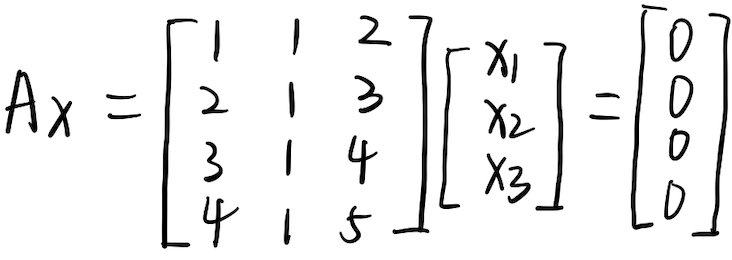 Ax = [1 1 2; 2 1 3; 3 1 4; 4 1 5] [x1; x2; x3] = [0; 0; 0; 0]